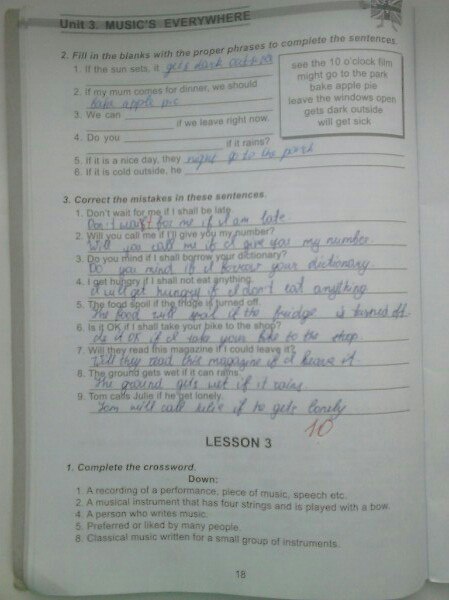 Unit 3. MUSIC'S EVERYWHERE
2. Fill in the blanks with the proper phrases to complete the sentences.
1. If the sun sets, it gets dark outside
2. if my mum comes for dinner, we should
bake apple pie
3. We can if we leave right now.
4. Do you if it rains?
5. If it is a nice day, they might go to the park
8. If it is cold outside, he
see the 10 o'clock film
might go to the park
bake apple pie
leave the windows open
gets dark outside
will get sick
3. Correct the mistakes in these sentences.
1. Don't wait for me if I shall be late.
Don't wait for me if I am late
2. Will you call me if I'll give you my number?
Will you call me if I give you my number.
3. Do you mind if I shall borrow your dictionary?
Do you mind if I borrow your dictionary.
4. I get hungry if I shall not eat anything.
I will get hungry if I don't eat anything
5. The food spoil if the fridge is turned off.
The food will spoil if the fridge is turned off.
6. Is it OK if I shall take your bike to the shop?
Is it OK if I take your bike to the shop
7. Will they read this magazine if I could leave it?
Will they read this magazine if I leave it
8. The ground gets wet if it can rains.
The ground gets wet if it rains.
9. Tom calls Julie if he get lonely.
Tom will call Julie if he gets lonely
10
LESSON 3
1. Complete the crossword.
Down:
1. A recording of a performance, piece of music, speech etc.
2. A musical instrument that has four strings and is played with a bow.
4. A person who writes music.
5. Preferred or liked by many people.
8. Classical music written for a small group of instruments.
18